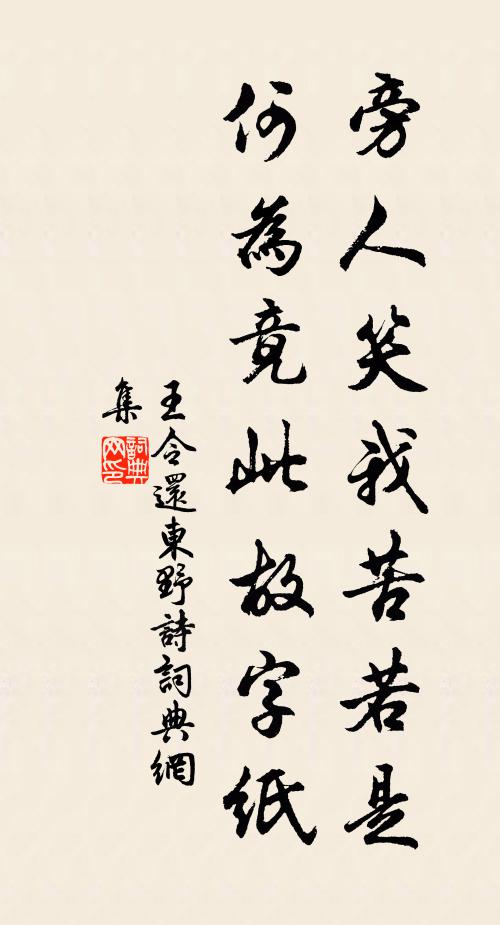 旁人笑我苦若是
何為竟此故字紙
王令還東野詩詞典網
集
詞典網印